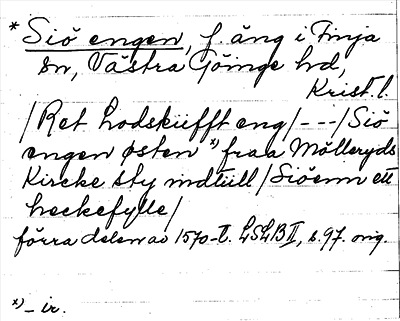 * Siö engen, f. äng i Finja
sn, Västra Göinge hd,
Krist. l.
/Ret hodskiifft eng/---/Siö
engen østen *) fraa Mölleryds
Kircke sty indtiill/Siöenn ett
heckefylle/
förra delen av 1570-t. LSLB II, s. 97. orig.
*) - ir.